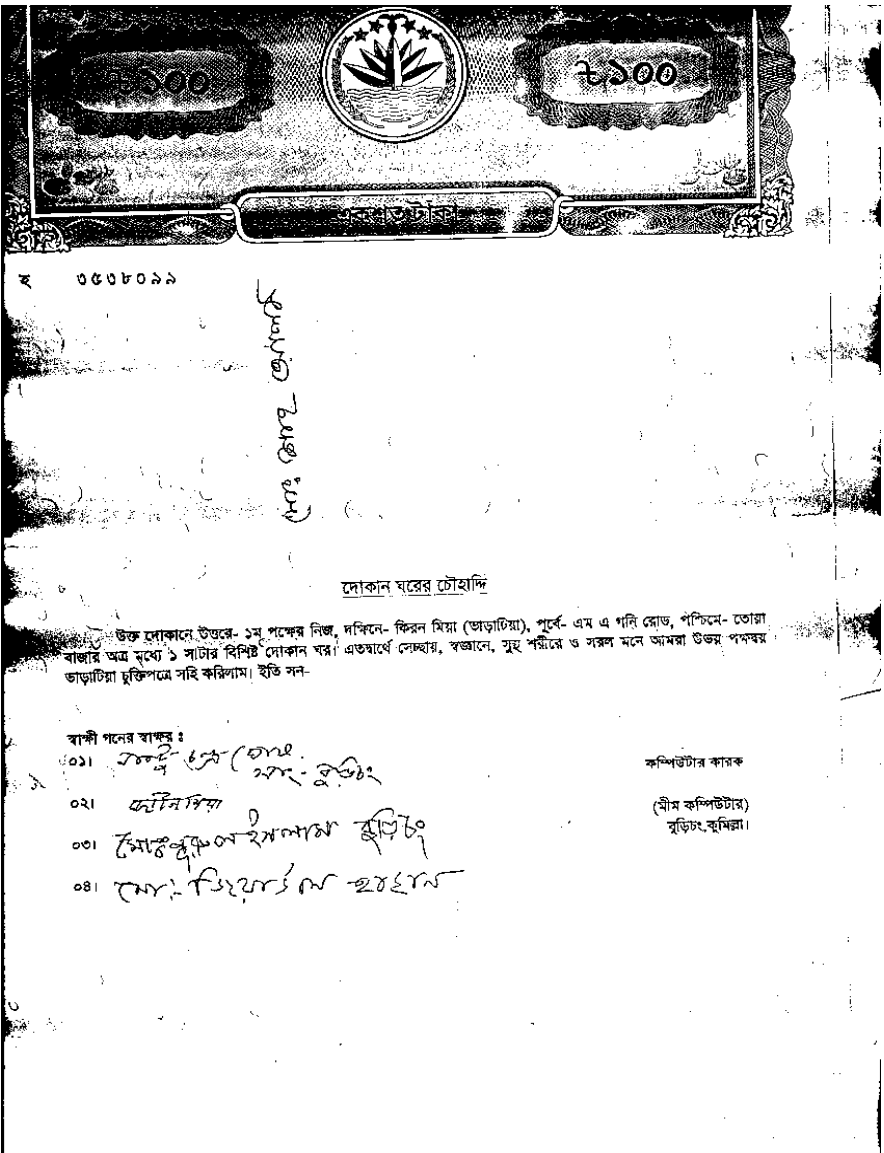 ৳১০০ ৳১০০
একশত টাকা
হ ৩৫৩৮০৯৯
মোঃ
দোকান ঘরের চৌহাদ্দি
উক্ত দোকানে উত্তরে- ১ম পক্ষের নিজ, দক্ষিনে- কিরন মিয়া (ভাড়াটিয়া), পূর্বে- এম এ গনি রোড, পশ্চিমে- তোয়া
বাজার অত্র মধ্যে ১ সাটার বিশিষ্ট দোকান ঘর। এতদ্বার্থে সেচ্ছায়, স্বজ্ঞানে, সুস্থ শরীরে ও সরল মনে আমরা উভয় পক্ষদ্বয়
ভাড়াটিয়া চুক্তিপত্রে সহি করিলাম। ইতি সন-
স্বাক্ষী গনের স্বাক্ষর ঃ
০১।
সাং- বুড়িচং
কম্পিউটার কারক
০২। মিয়া
(মীম কম্পিউটার)
০৩। ইসলাম বুড়িচং
বুড়িচং,কুমিল্লা।
০৪। মো: